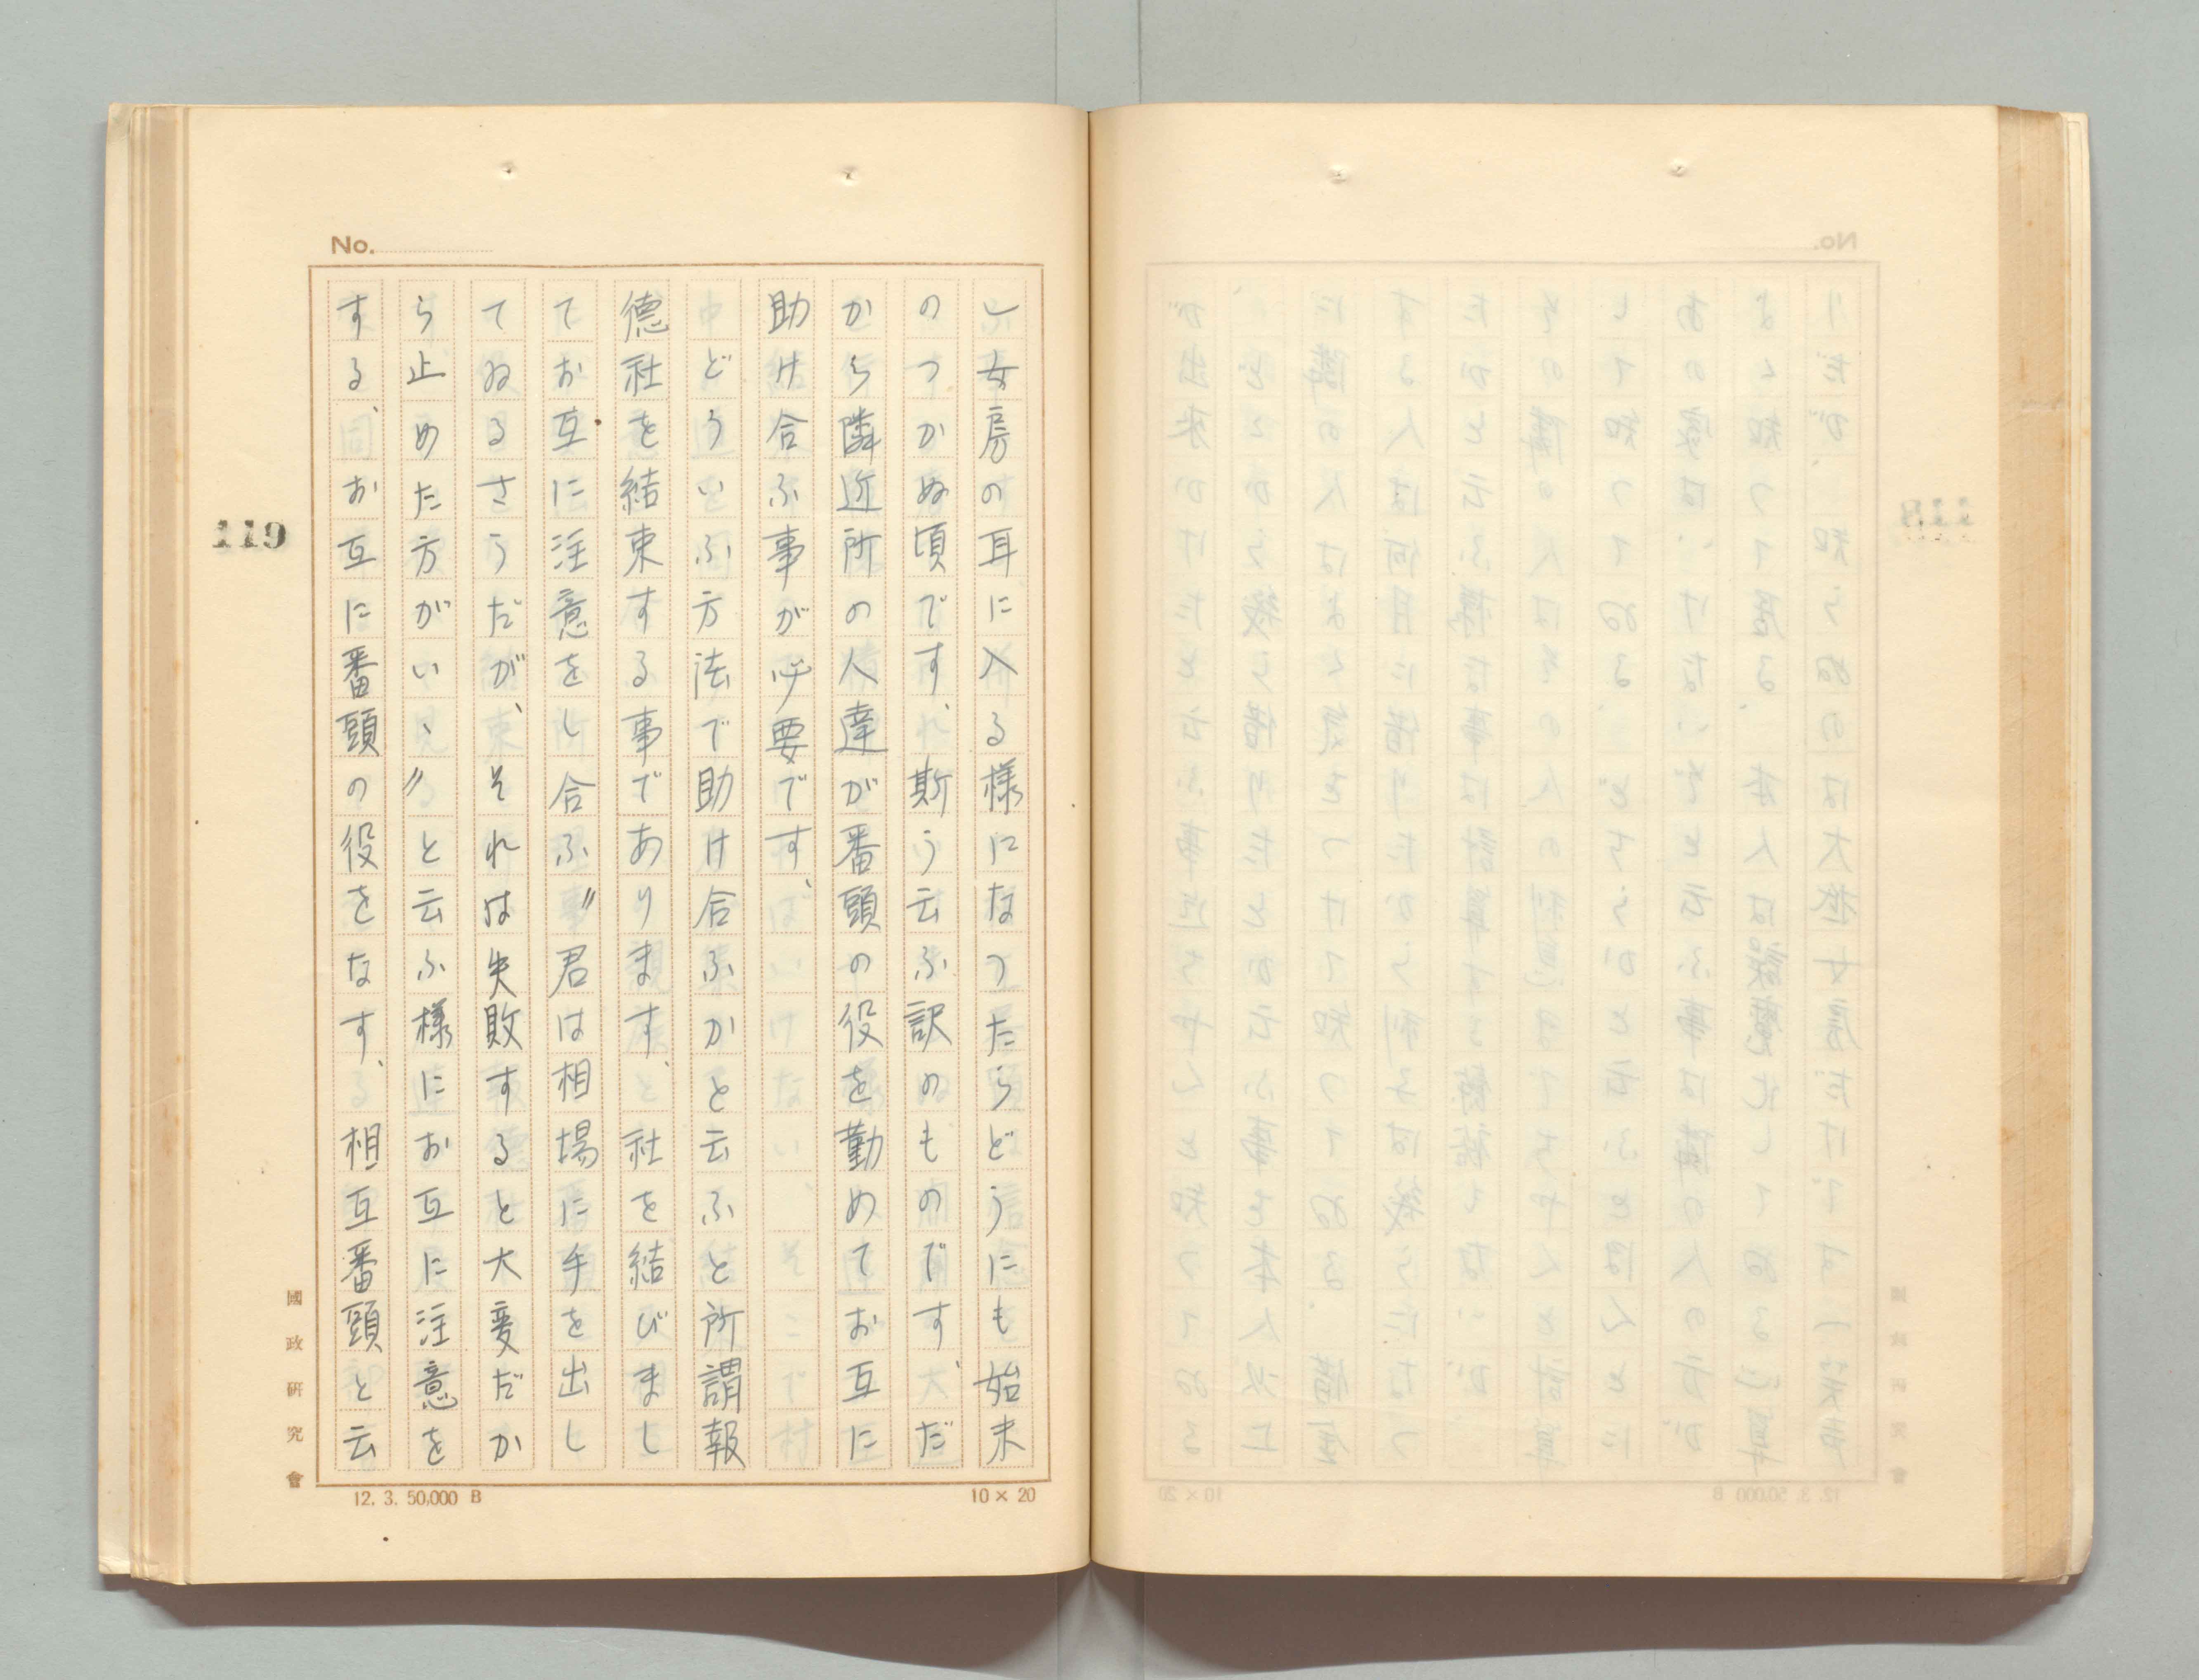 No.
し女房の耳に入る様になつたらどうにも始末
のつかぬ頃です、斯う云ふ訳のものです、だ
から隣近所の人達が番頭の役を勤めてお互に
助け合ふ事が必要です、
どういふ方法で助け合ふかと云ふと所謂報
德社を結束する事であります、社を結びまし
てお互に注意をし合ふ〃君は相場に手を出し
てゐるさうだが、それは失敗すると大変だか
ら止めた方がいゝ〃と云ふ様にお互に注意を
する、お互に番頭の役をなす、相互番頭と云
119
國政研究會
12. 3. 50,000 B
10×20